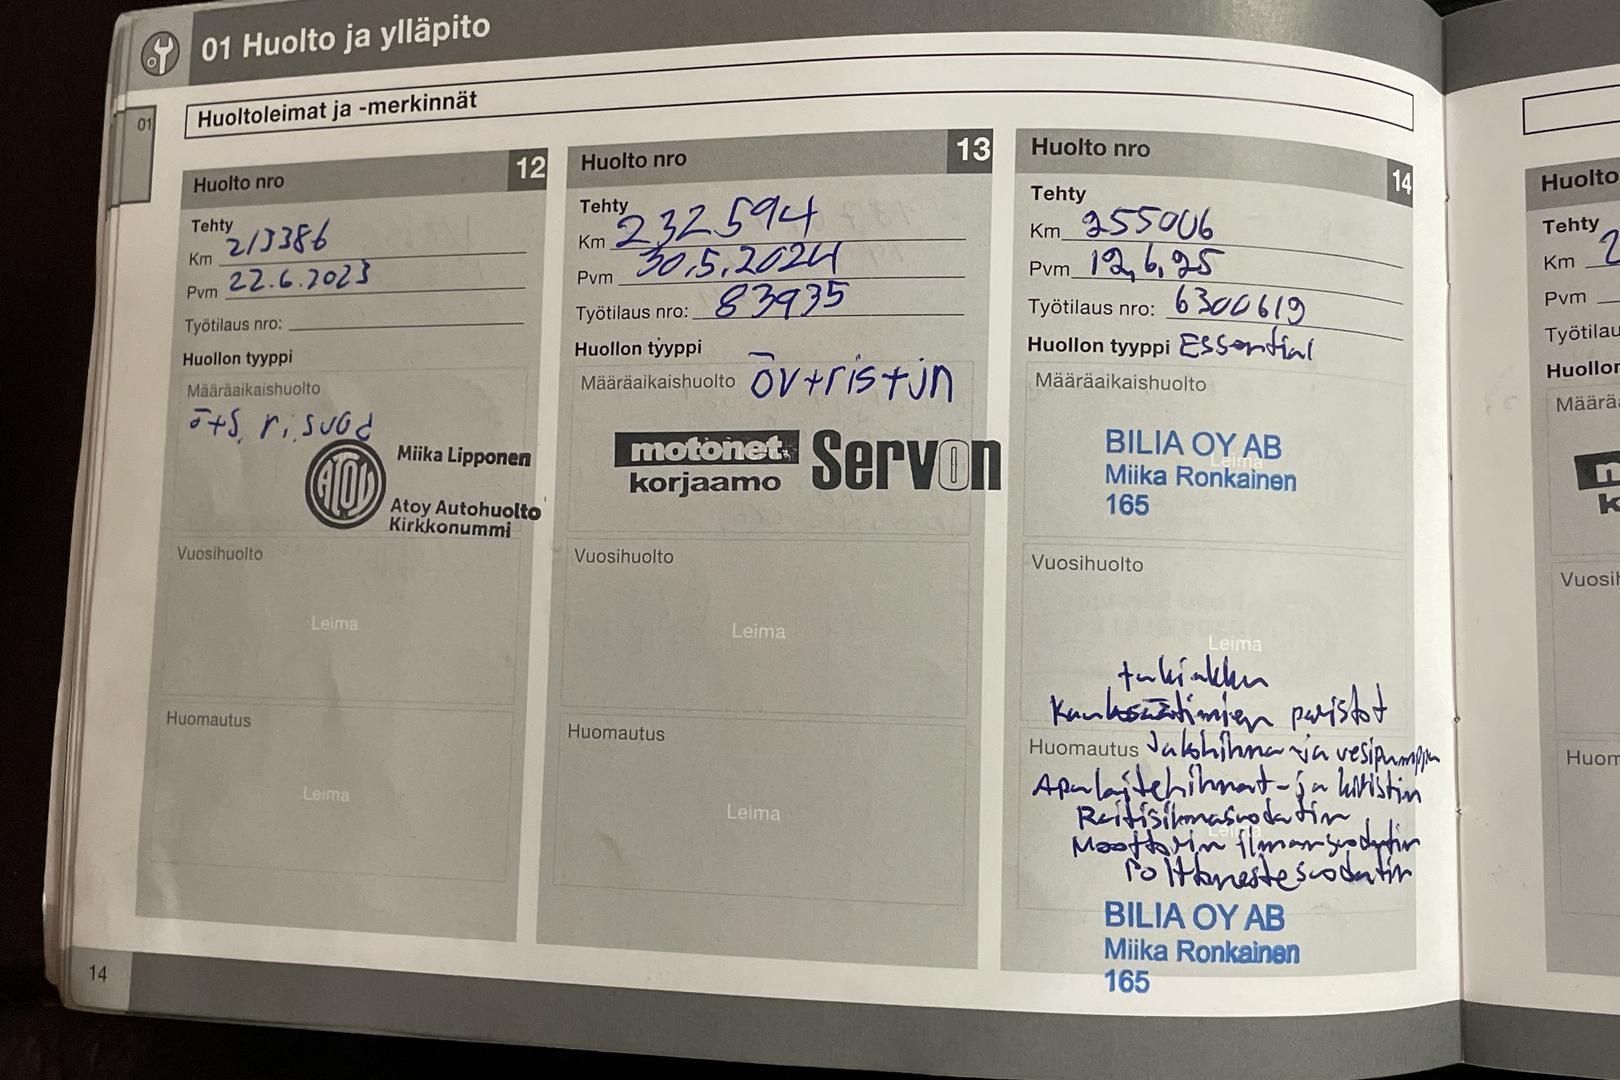 01 Huolto ja ylläpito
01
Huoltoleimat ja -merkinnät
Huolto nro 12
Tehty
Km 213386
Pvm 22.6.2023
Työtilaus nro:
Huollon tyyppi
Määräaikaishuolto
ATOY
Miika Lipponen
Atoy Autohuolto
Kirkkonummi
Vuosihuolto
Leima
Huomautus
Leima
14
Huolto nro 13
Tehty
Km 232.594
Pvm 30.5.2024
Työtilaus nro: 83935
Huollon tyyppi
Määräaikaishuolto
motonet
korjaamo
Servon
Vuosihuolto
Leima
Huomautus
Leima
Huolto nro 14
Tehty
Km 255006
Pvm 12,6,25
Työtilaus nro: 6300619
Huollon tyyppi Essential
Määräaikaishuolto
Leima
BILIA OY AB
Miika Ronkainen
165
Vuosihuolto
Leima
tukiakku
Kaukosäätimien paristot
Huomautus Jakohihna -ja vesipumppu
Apulaitehihnat- ja kiristin
Raitisilmasuodatin
Leima
Moottorin ilmansuodatin
Polttonestesuodatin
BILIA OY AB
Miika Ronkainen
165
Huolto
Tehty
Km 2
Pvm
Työtilau
Huollon
Määrä
Vuosih
Huom